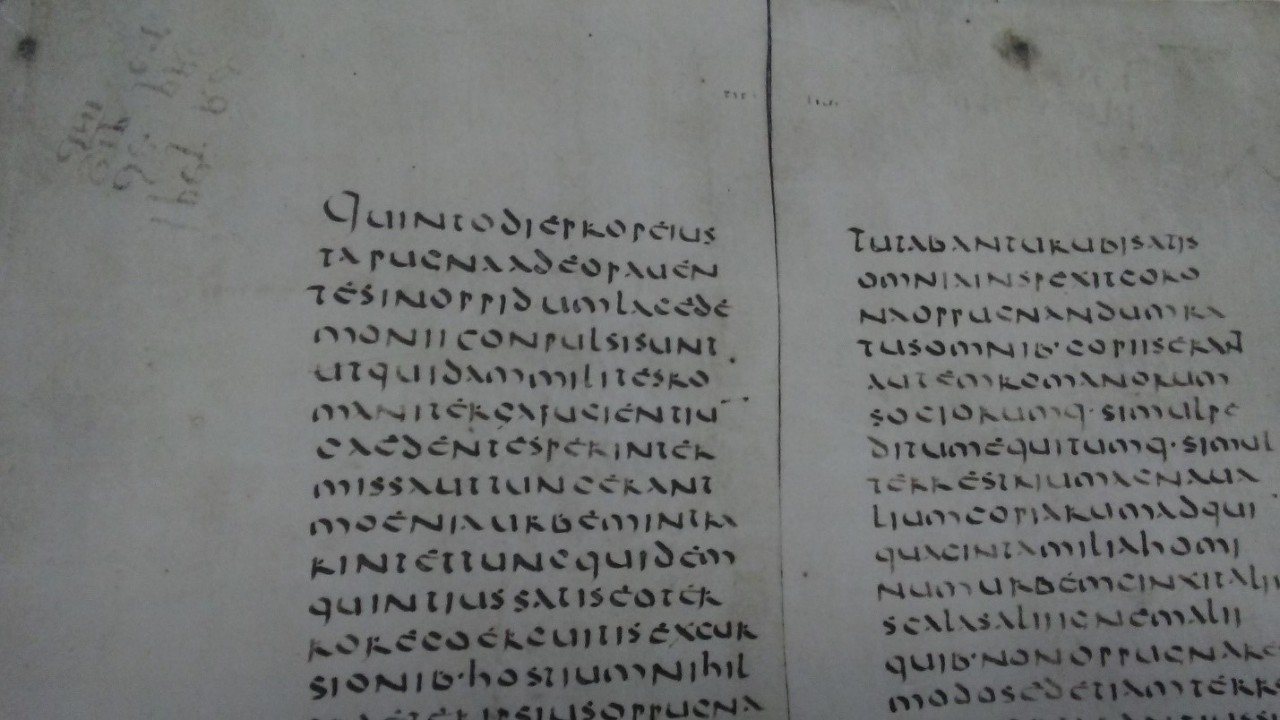 QUINTODIEPROPEIUS
TAPUGNAADEOPAUEN
TESINOPPIDUMLACEDE
MONIICONPULSISUNT
UTQUIDAMMILITESRO
MANITERGAFUGIENTIU
CAEDENTESPERINTER
MISSAUTTUNCERANT
MOENIAURBEMINTRA
RINTETTUNCQUIDEM
QUINTIUSSATISEOTER
RORECOERCUITISEXCUR
SIONIB·HOSTIUMNIHIL
RAETERIPSIUSOPPUGNA
TUTABANTURUBISATIS
OMNIAINSPEXITCORO
NAOPPUGNANDUMRA
TUSOMNIB·COPIISERANT
AUTEMROMANORUM
SOCIORUMQ·SIMULPE
DITUMEQUITUMQ·SIMUL
TERRESTRIUMACNAUA
LIUMCOPIARUMADQUI
QUAGINTAMILIAHOMI
NUMURBEMCINXITALII
SCALASALIIIGNEMALII
QUIB·NONOPPUGNARE
MODOSEDETIAMTERRE